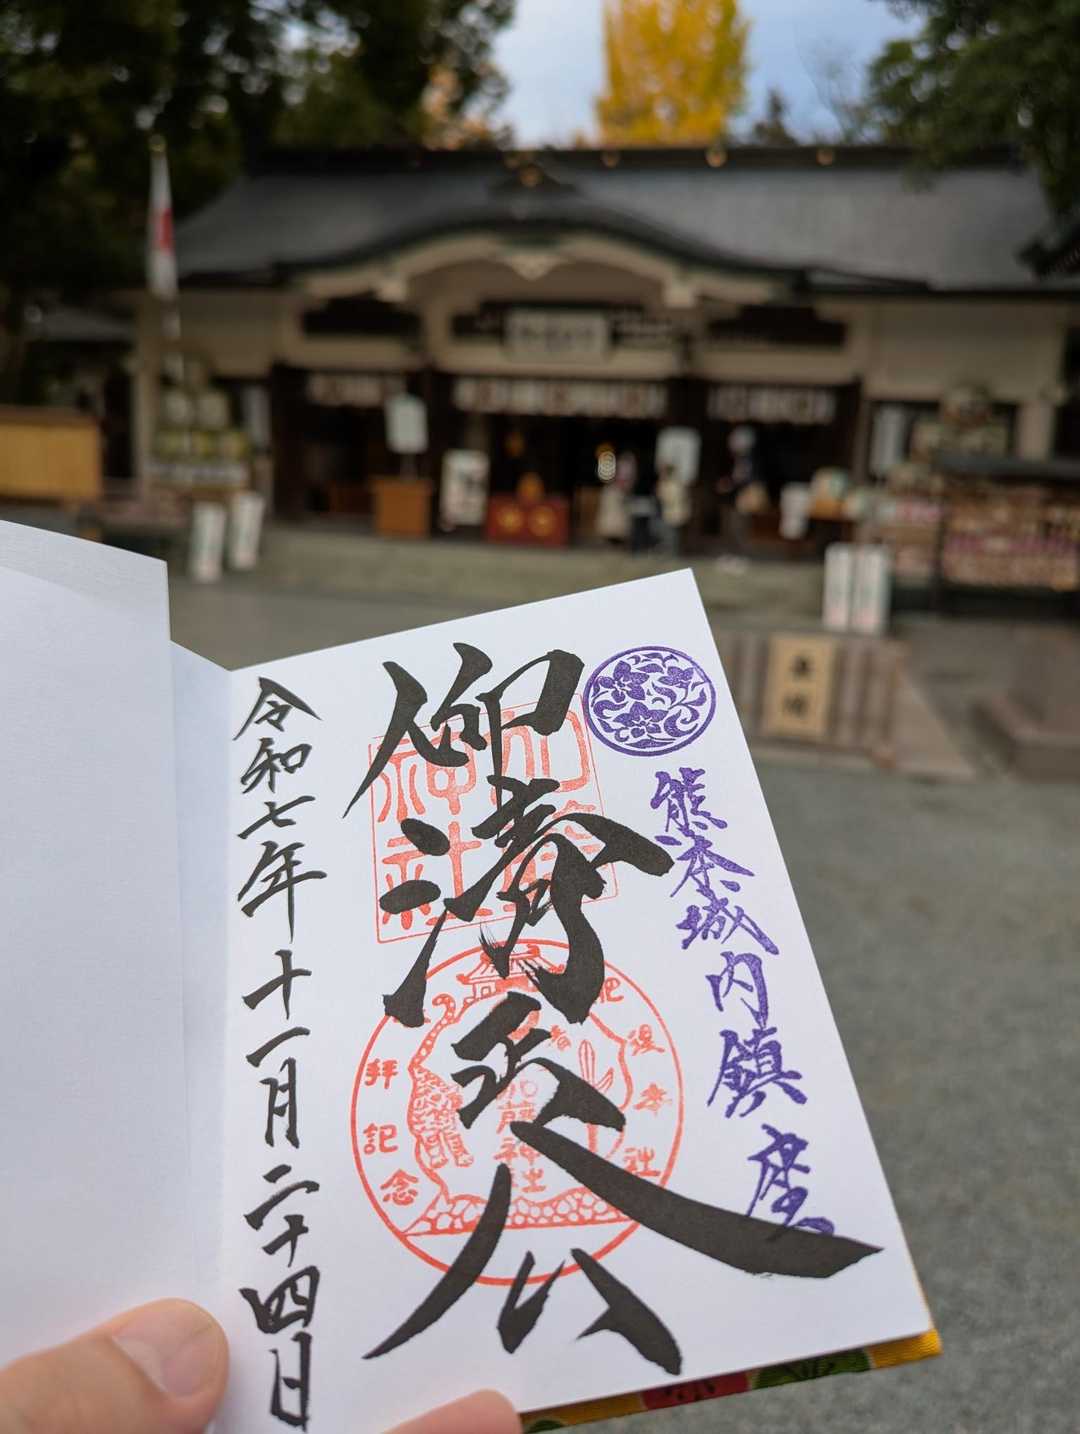 熊本城内鎮座
仰清正公
加藤神社
加藤神社
拝記念
令和七年十一月二十四日